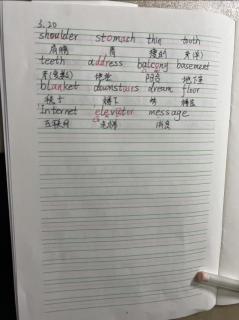 3.20
shoulder stomach thin tooth
肩膀 胃 瘦的 牙(单)
teeth address balcony basement
牙(复数) 地址 阳台 地下室
blanket downstairs dream floor
毯子 楼下 梦 楼层
Internet elevator message
互联网 电梯 消息